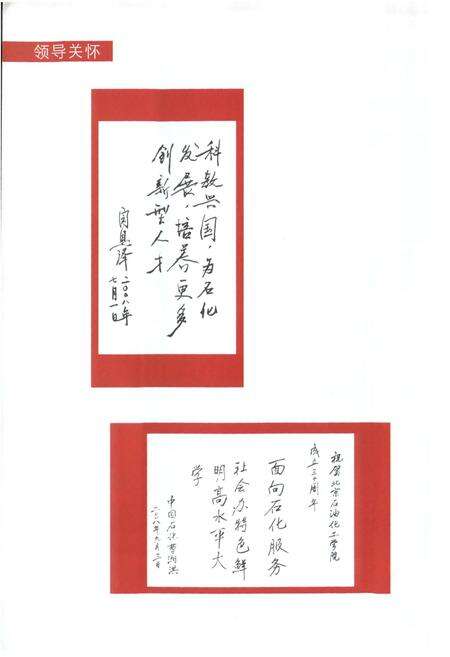 领导关怀
科教兴国，为石化
发展，培养更多
创新型人才
闵恩泽 二〇〇八年
七月一日
祝贺北京石油化工学院
成立三十周年
面向石化服务
社会办特色鲜
明，高水平大
学
中国石化 曹湘洪
二〇〇八年九月二日